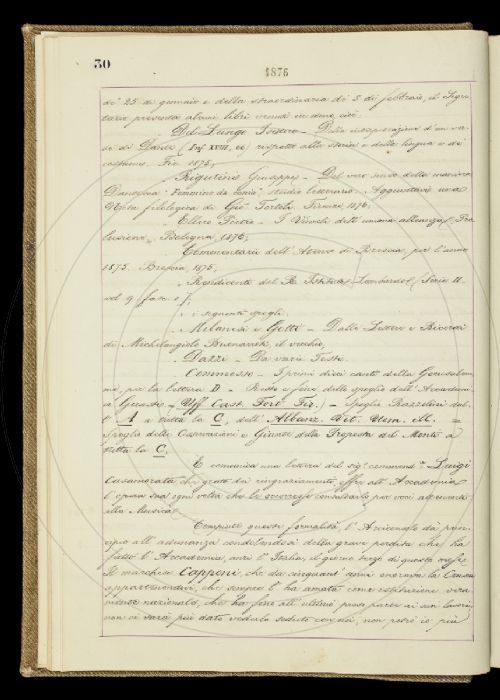 30
1876
di 25 di gennaio e della straordinaria di 5 di febbraio, il Segre-
tario presenta alcuni libri venuti in dono, cioè:
Del Lungo Isidoro – Della interpretazione d'un ver-
so di Dante (Inf. XVIII, ) rispetto alla storia e della lingua e dei
costumi. Fir. 1875;
Rigutini Giuseppe – Del vero senso della maniera
Dantesca studio letterario. Aggiuntavi una
Nota filologica di Gio. Tortoli. Firenze, 1876;
Ellero Pietro – I Vincoli dell'umana alleanza, Pro-
lusione. Bologna, 1876;
Commentarii dell'Ateneo di Brescia, per l'anno
1875. Brescia, 1875;
Rendiconti del R. Istituto Lombardo (Serie II
vol. 9 fasc. 1);
i seguenti spogli:
Milanesi e Gotti – Dalle Lettere e Ricordi
di Michelangiolo Buonarroti, il vecchio;
Dazzi – Da varii Testi.
Commesso – I primi dieci canti della Gerusalem-
me, per la lettera D – Resto e fine dello spoglio dell'
Uff. Cast. Fort. Fir. – Spoglio
A e tutta la C, dell'
Spoglio delle Osservazioni e Giunte della Proposta del Monti a
tutta la C.
È comunicata una lettera del sig. commend.re Luigi
Casamorata che, grato dei ringraziamenti, offre all'Accademia
l'opera sua ogni volta che le occoresse consultarlo per voci attenenti
alla Musica.
Compiute queste formalità l'Arciconsolo dà prin-
cipio all'adunanza condolendosi della grave perdita che ha
fatto l'Accademia, anzi l'Italia, il giorno terzo di questo mese.
Il marchese Capponi, che da cinquant'anni onorava la Crusca
appartenendovi, che sempre l'ha amata come istituzione vera-
mente nazionale, che ha fino all'ultimo preso parte ai suoi lavori,
non ci sarà più dato vederlo seduto con noi, non potrà io più